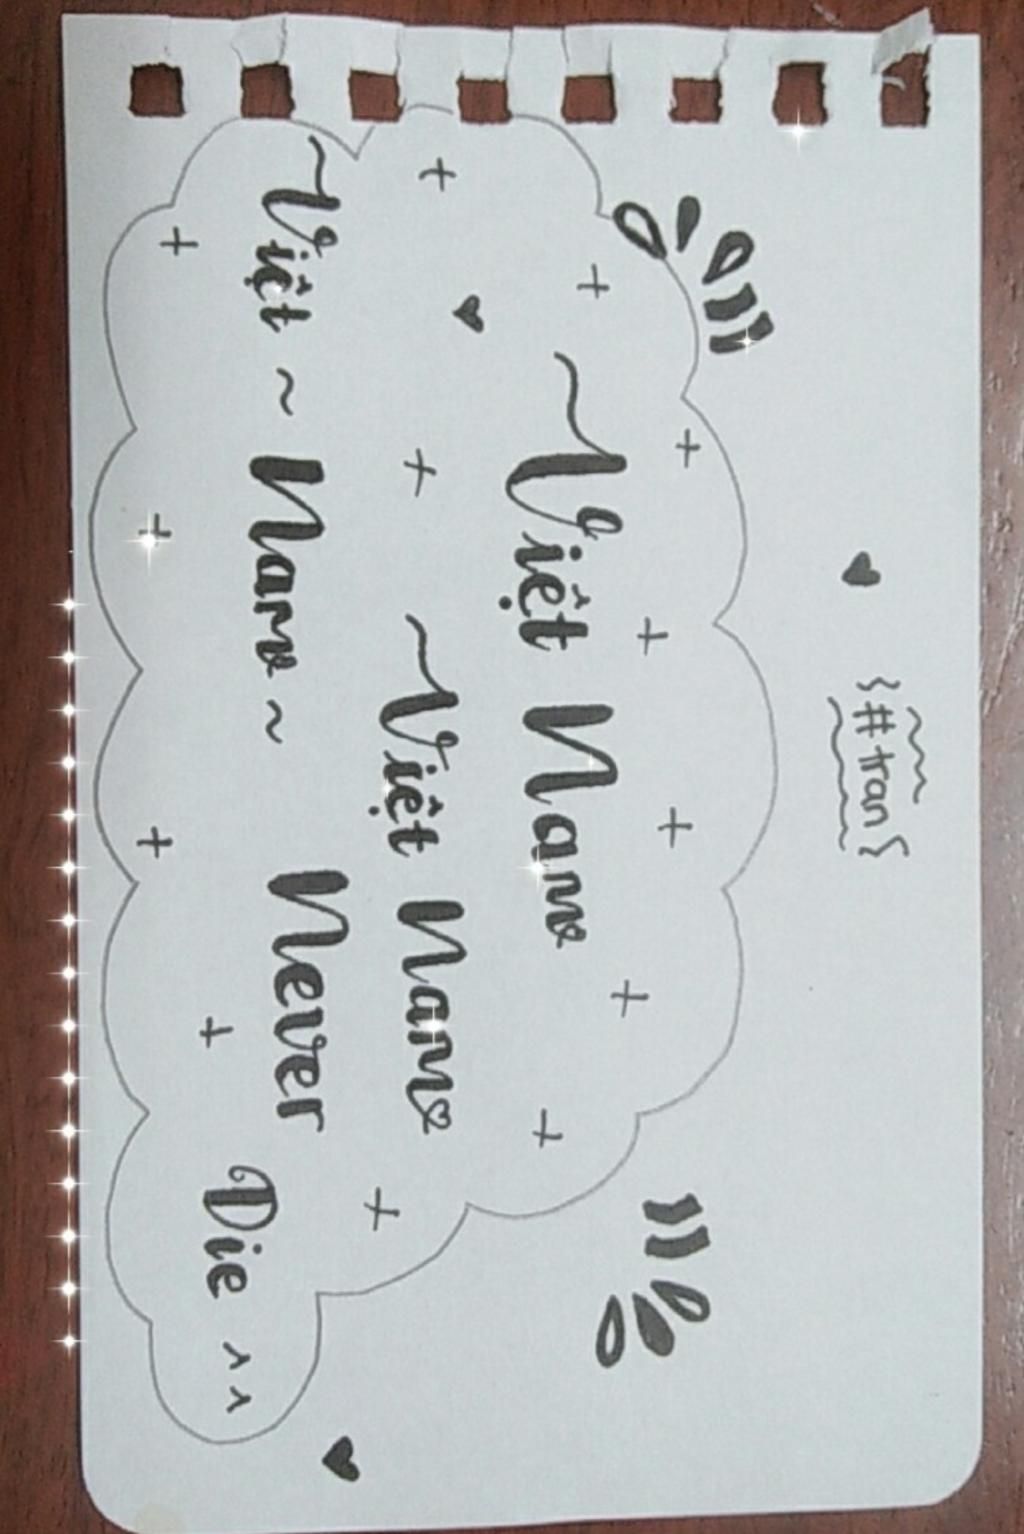 {#tran}
~Việt Nam
~Việt Nam
Việt ~ Nam ~ Never Die ^^